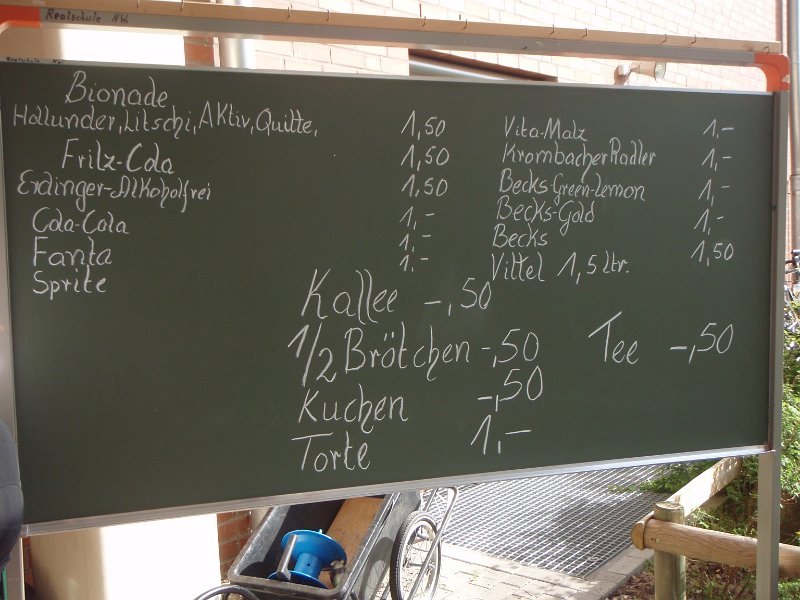 Realschule NW
Bionade
Hollunder, Litschi, Aktiv, Quitte, 1,50
Fritz-Cola 1,50
Erdinger-Alkoholfrei 1,50
Cola-Cola 1,-
Fanta 1,-
Sprite 1,-
Vita-Malz 1,-
Krombacher Radler 1,-
Becks Green-Lemon 1,-
Becks-Gold 1,-
Becks
Vittel 1,5 ltr. 1,50
Kaffee -,50
1/2 Brötchen -,50
Tee -,50
Kuchen -,50
Torte 1,-